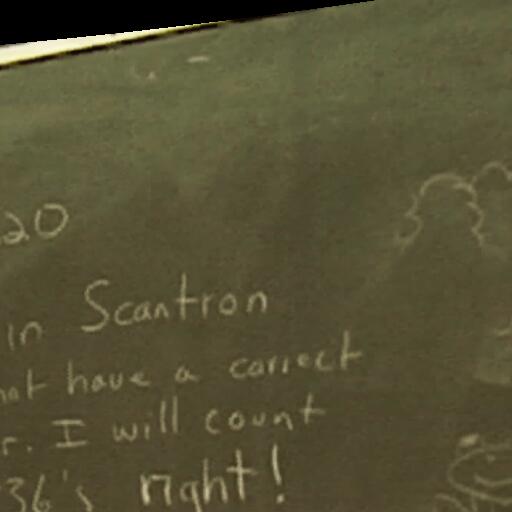 20
in Scantron
not have a correct
r. I will count
36's right!